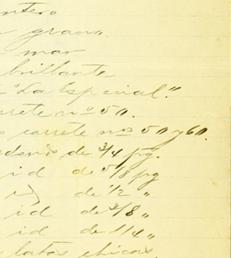 entero
grano
mar
brillante
"La Especial."
carrete nº 50.
carrete nos 50 y 60.
de 3/4 pg.
id de 5/8 pg
id de 1/2 "
id de 3/8 "
id de 1/4 "
latas chicas